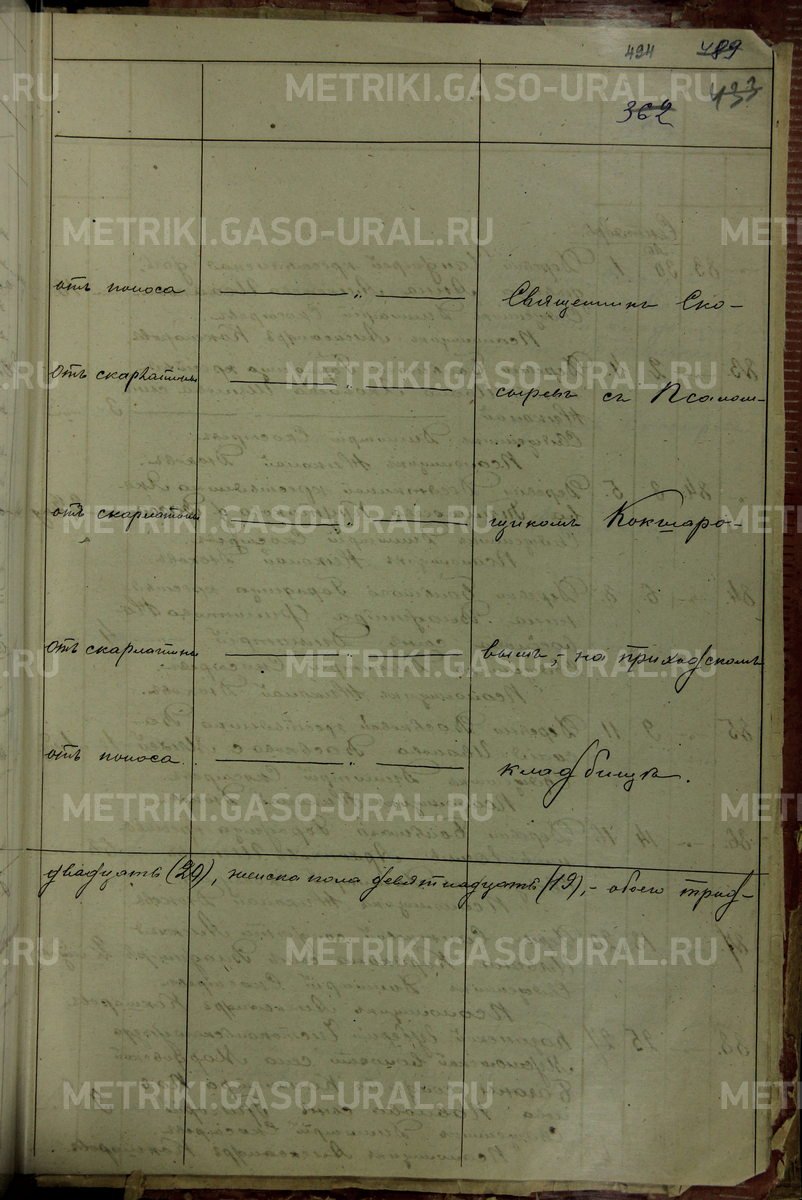 494 489
433
362
отъ поноса — „ — Священникъ Ско-
отъ скарлатины — „ — сыревъ съ Псалом-
отъ скарлатины — „ — щикомъ Кокшаро-
отъ скарлатины — „ — вымъ, - на приходскомъ
отъ поноса — „ — кладбищѣ.
двадцать (20), женска пола девятнадцать (19), - обоего трид-
METRIKI.GASO-URAL.RU